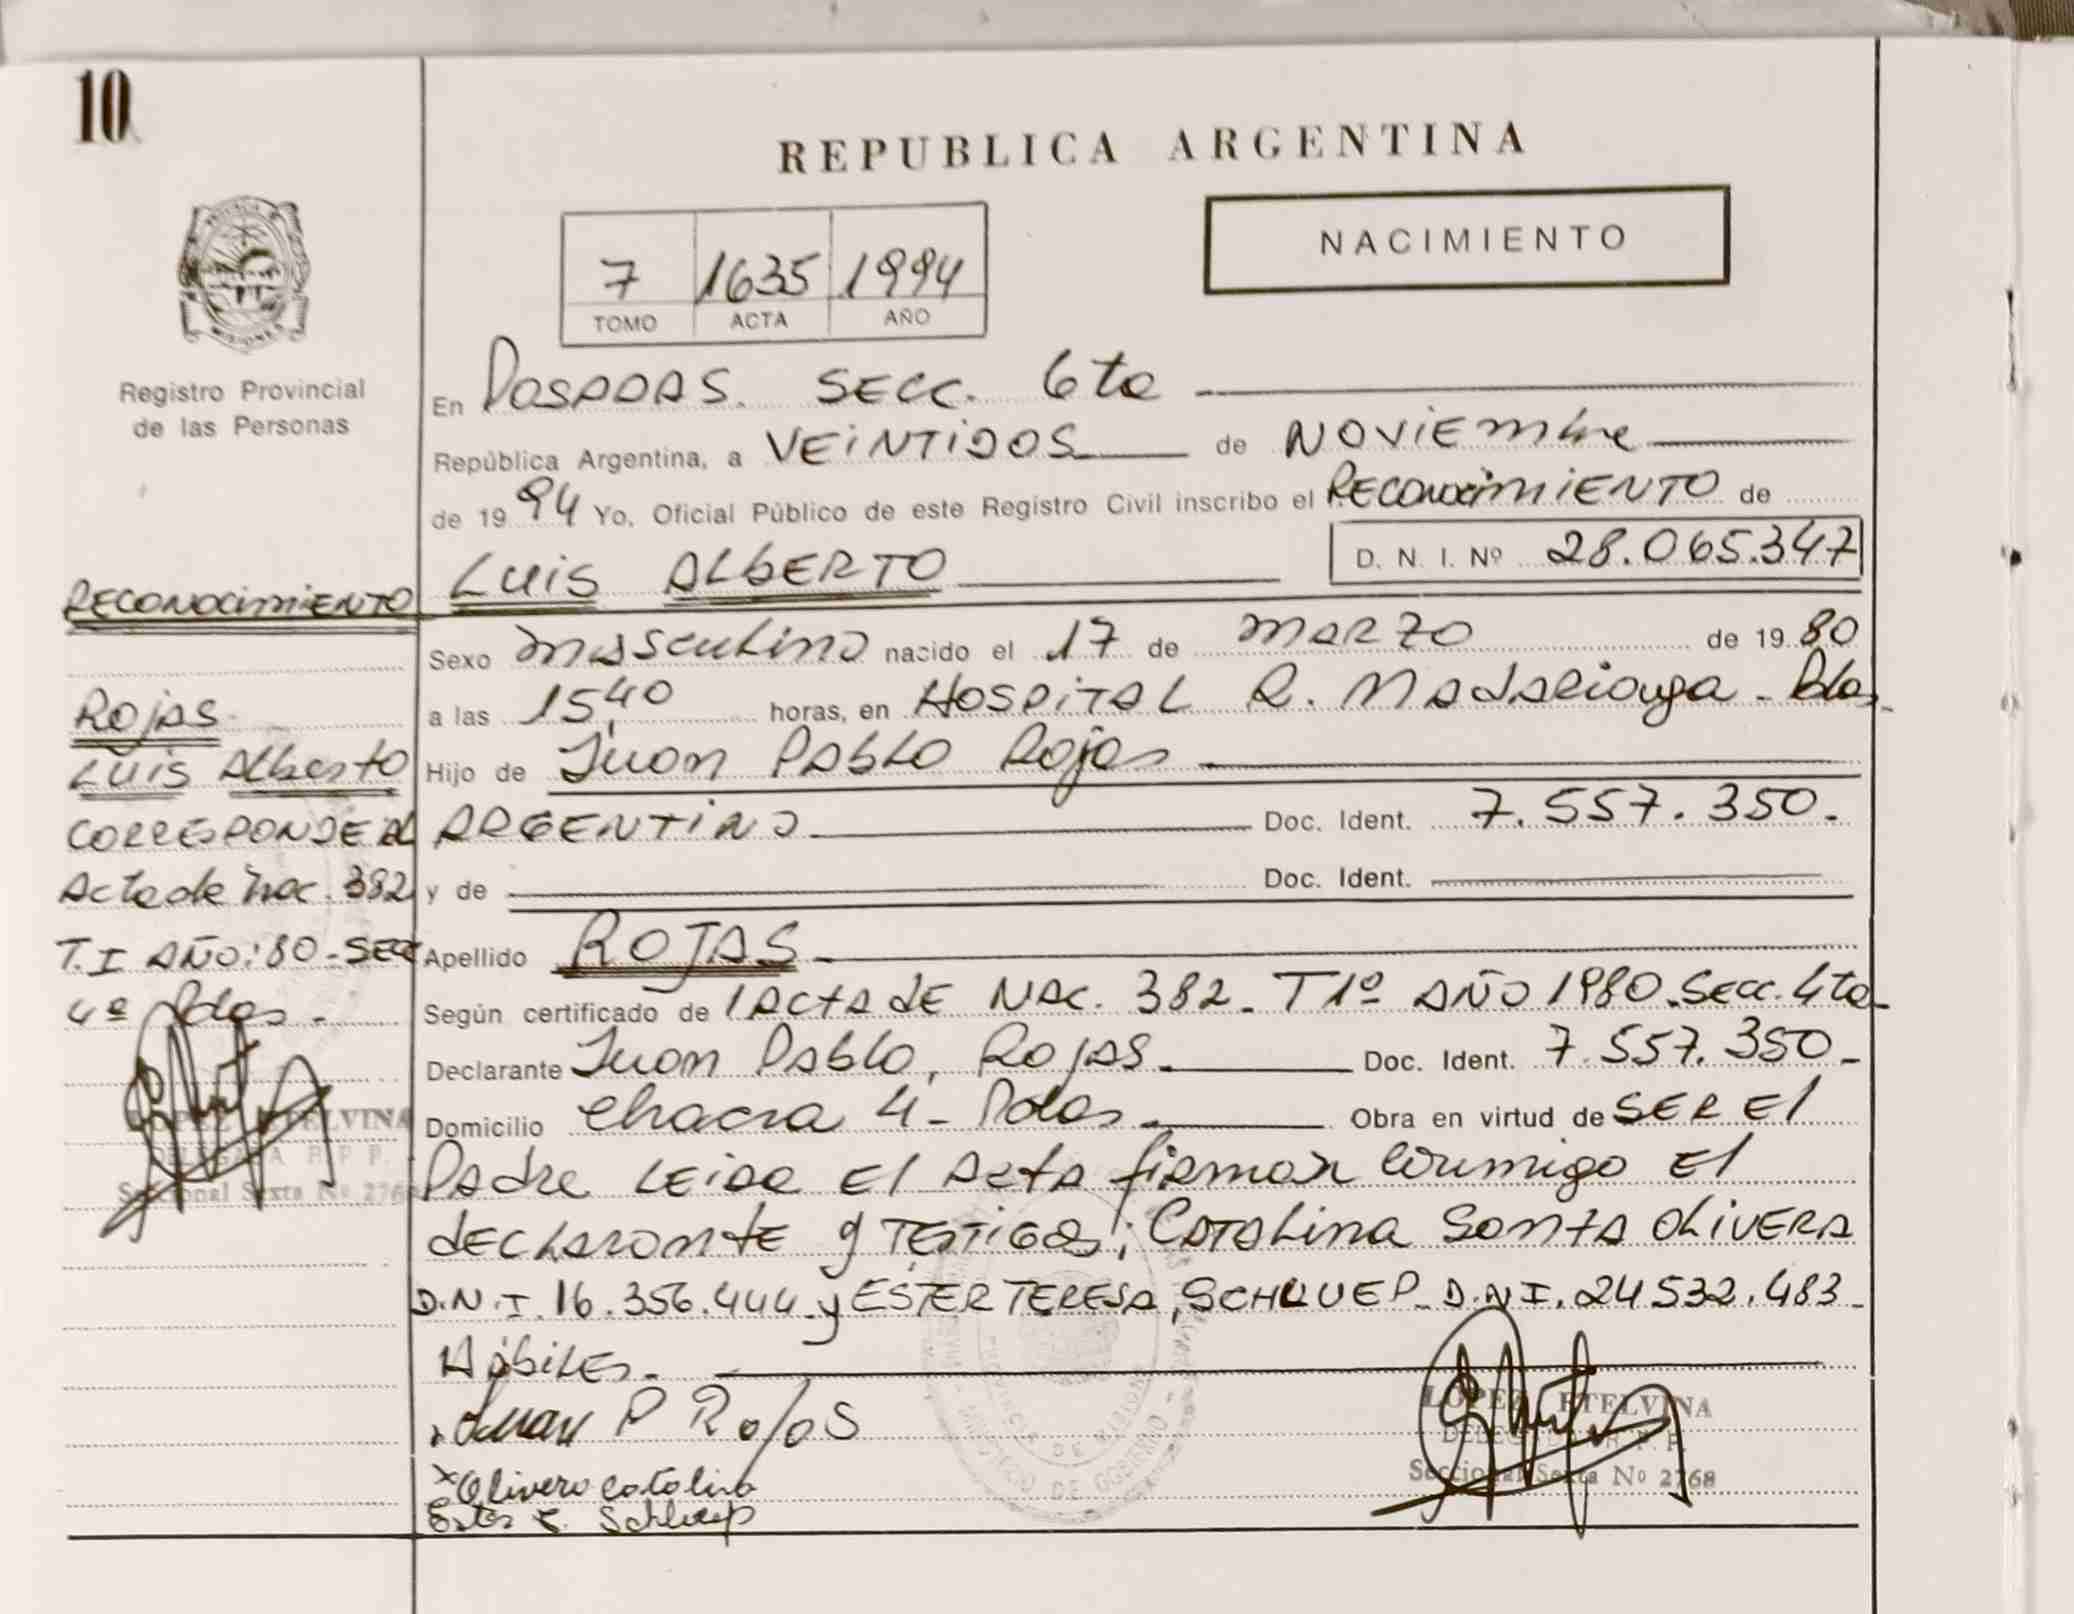 10
REPUBLICA ARGENTINA
NACIMIENTO
7 1635 1994
TOMO ACTA AÑO
Registro Provincial
de las Personas
En POSADAS. SECC. 6ta
República Argentina, a VEINTIDOS de NOVIEMbre
de 1994 Yo, Oficial Público de este Registro Civil inscribo el RECONOCIMIENTO de
LUIS ALBERTO D. N. I. Nº 28.065.347
Sexo Masculino nacido el 17 de MARZO de 1980
a las 15,40 horas, en HOSPITAL R. MADARIAGA - Pdas.
Hijo de Juan PABLO Rojas
ARGENTINO Doc. Ident. 7.557.350.
y de Doc. Ident.
Apellido ROJAS
Según certificado de 1 ACTA dE NAC. 382 - T1º AÑO 1980. Secc. 4ta
Declarante Juan PABLO, ROJAS. Doc. Ident. 7.557.350-
Domicilio Chacra 4 - Pdas. Obra en virtud de SER El
PAdre LEIDA El ActA firman Conmigo El
dECLARANtE y TESTIGOS; CATALINA SANTA OLIVERA
D.N.I. 16.356.444 y ESTER TERESA, SCHLUEP D.N.I. 24532.483-
HábiLEs.
Juan P Rojas
x Olivera Catalina
Ester T. Schluep
LOPEZ ETELVINA
DELEGADA R. P. P.
Seccional Sexta Nº 2768
RECONOCIMIENTO
ROJAS
LUIS Alberto
CORRESPONDE Al
Acta de Nac. 382
T.I AÑO: 80 - SEcc
4ª Pdas.
LOPEZ ETELVINA
DELEGADA R. P. P.
Seccional Sexta Nº 2768
PROVINCIA DE MISIONES
MINISTERIO DE GOBIERNO